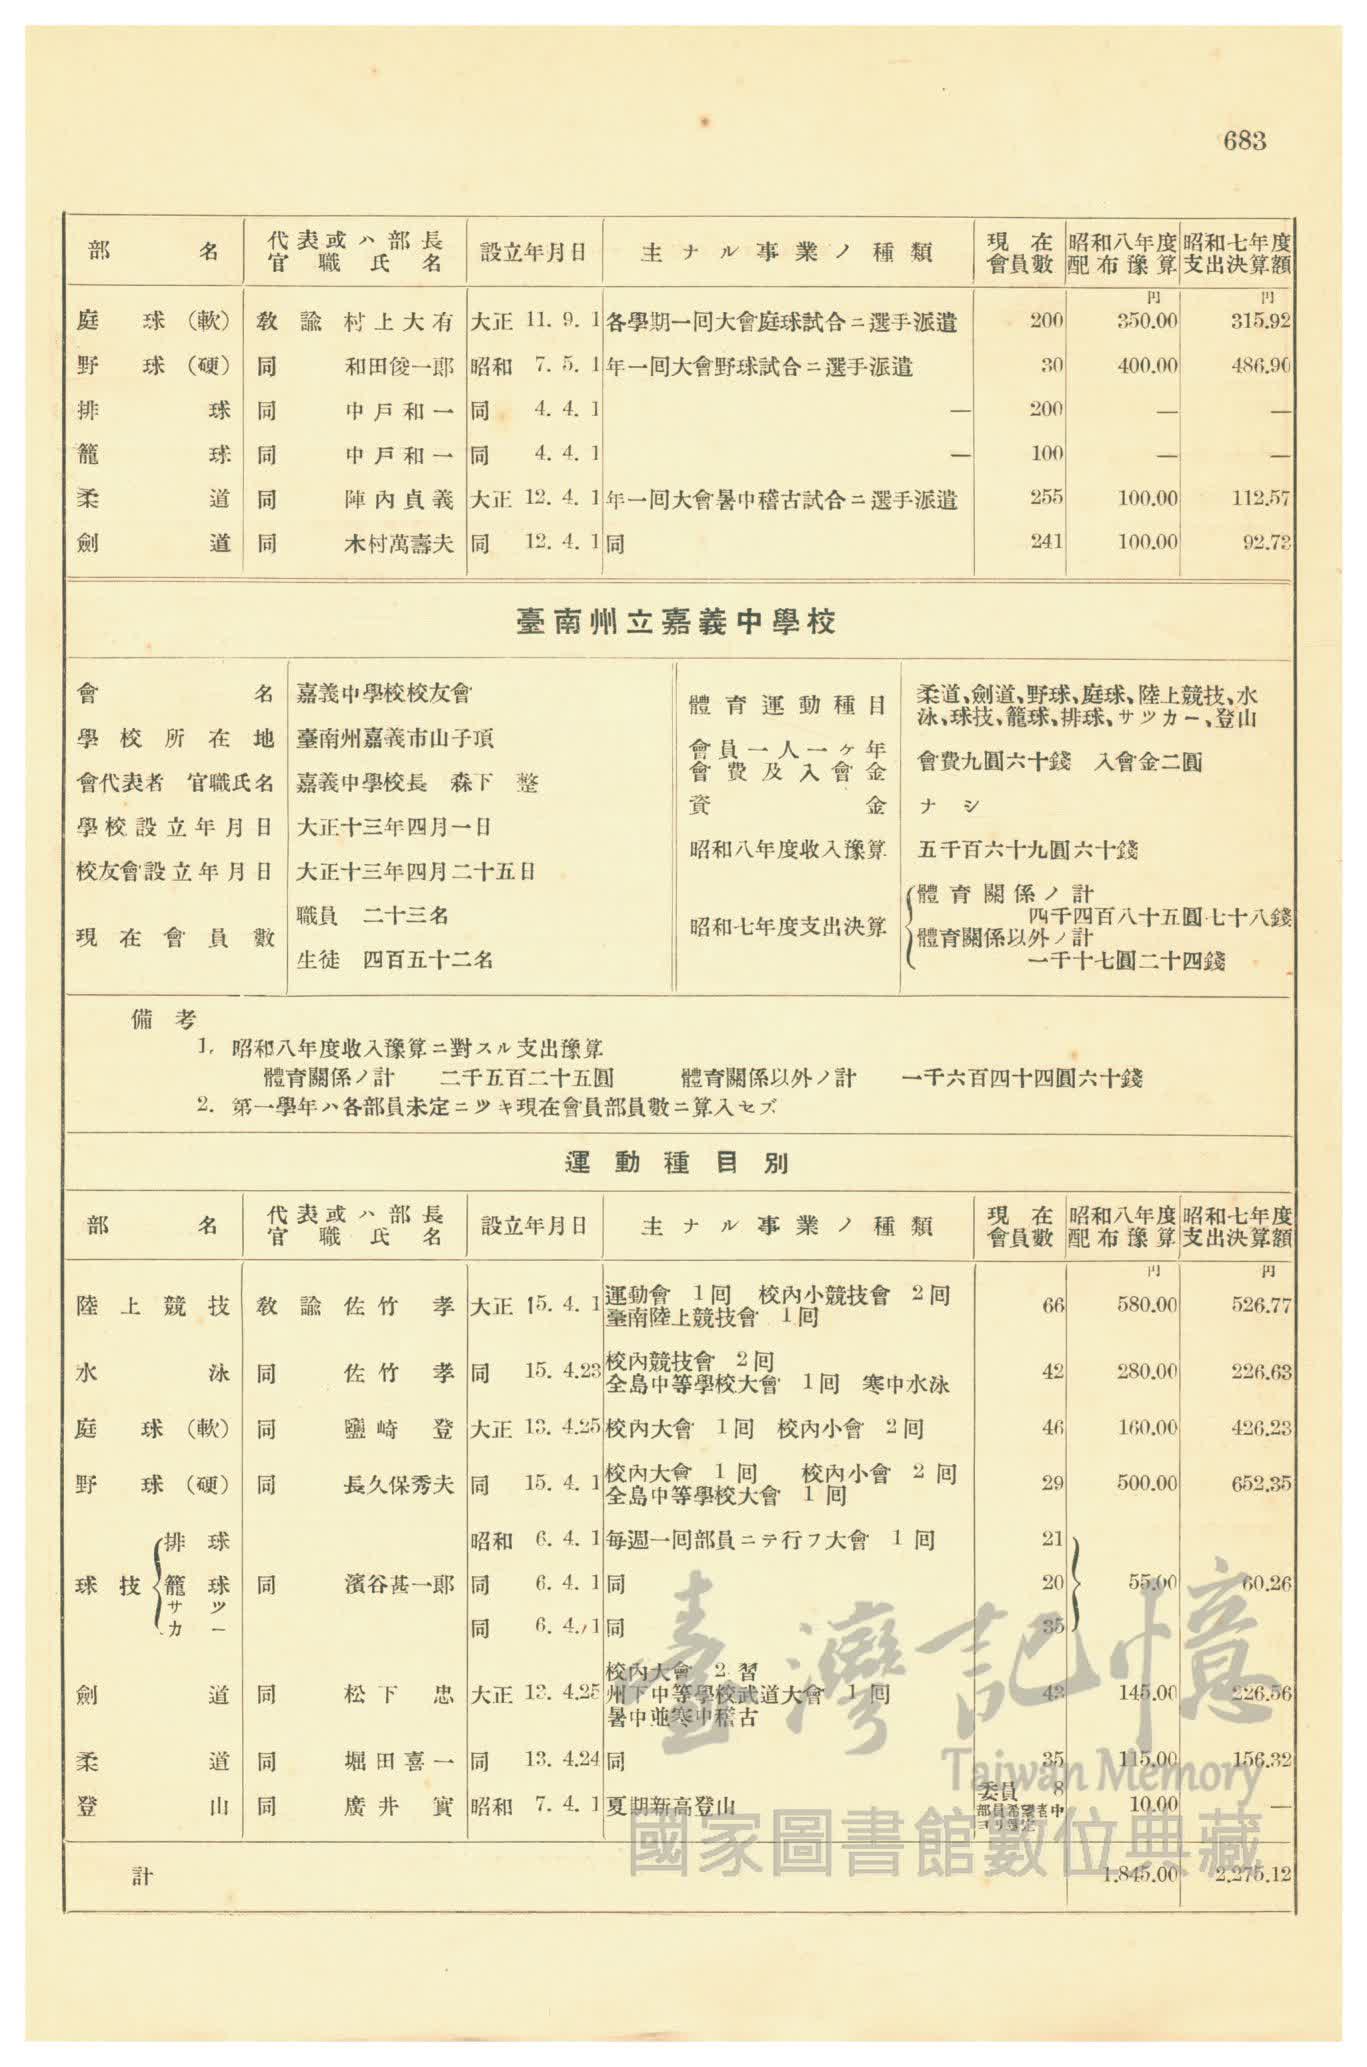 683
部名 代表或ハ部長官職氏名 設立年月日 主ナル事業ノ種類 現在會員數 昭和八年度配布豫算 昭和七年度支出決算額
円 円
庭球(軟) 教諭 村上大有 大正 11. 9. 1 各學期一回大會庭球試合ニ選手派遣 200 350.00 315.92
野球(硬) 同 和田俊一郎 昭和 7. 5. 1 年一回大會野球試合ニ選手派遣 30 400.00 486.90
排球 同 中戸和一 同 4. 4. 1 — 200 — —
籠球 同 中戸和一 同 4. 4. 1 — 100 — —
柔道 同 陣內貞義 大正 12. 4. 1 年一回大會暑中稽古試合ニ選手派遣 255 100.00 112.57
劍道 同 木村萬壽夫 同 12. 4. 1 同 241 100.00 92.73
臺南州立嘉義中學校
會名 嘉義中學校校友會
學校所在地 臺南州嘉義市山子頂
會代表者 官職氏名 嘉義中學校長 森下 整
學校設立年月日 大正十三年四月一日
校友會設立年月日 大正十三年四月二十五日
現在會員數 職員 二十三名
生徒 四百五十二名
體育運動種目 柔道、劍道、野球、庭球、陸上競技、水
泳、球技、籠球、排球、サツカー、登山
會員一人一ヶ年會費及入會金 會費九圓六十錢 入會金二圓
資金 ナシ
昭和八年度收入豫算 五千百六十九圓六十錢
昭和七年度支出決算 體育關係ノ計
四千四百八十五圓七十八錢
體育關係以外ノ計
一千十七圓二十四錢
備考
1. 昭和八年度收入豫算ニ對スル支出豫算
體育關係ノ計 二千五百二十五圓 體育關係以外ノ計 一千六百四十四圓六十錢
2. 第一學年ハ各部員未定ニツキ現在會員部員數ニ算入セズ
運動種目別
部名 代表或ハ部長官職氏名 設立年月日 主ナル事業ノ種類 現在會員數 昭和八年度配布豫算 昭和七年度支出決算額
円 円
陸上競技 教諭 佐竹 孝 大正 15. 4. 1 運動會 1回 校內小競技會 2回
臺南陸上競技會 1回 66 580.00 526.77
水泳 同 佐竹 孝 同 15. 4.23 校內競技會 2回
全島中等學校大會 1回 寒中水泳 42 280.00 226.63
庭球(軟) 同 鹽崎 登 大正 13. 4.25 校內大會 1回 校內小會 2回 46 160.00 426.23
野球(硬) 同 長久保秀夫 同 15. 4. 1 校內大會 1回 校內小會 2回
全島中等學校大會 1回 29 500.00 652.35
球技 排球 昭和 6. 4. 1 每週一回部員ニテ行フ大會 1回 21
籠球 同 濱谷甚一郎 同 6. 4. 1 同 20 55.00 60.26
サツカー 同 6. 4. 1 同 35
劍道 同 松下 忠 大正 13. 4.25 校內大會 2 習
州下中等學校武道大會 1回
暑中並寒中稽古 43 145.00 226.56
柔道 同 堀田喜一 同 13. 4.24 同 35 115.00 156.32
登山 同 廣井 實 昭和 7. 4. 1 夏期新高登山 委員 8
部員希望者中ヨリ 10.00 —
計 1,845.00 2,275.12
臺灣記憶
Taiwan Memory
國家圖書館數位典藏